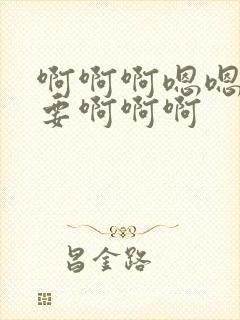 啊啊啊嗯嗯
要啊啊啊
昌金路